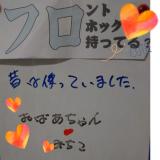 フロント
ホック
持ってる?
昔は使っていました。
おなあちゃん
みちこ